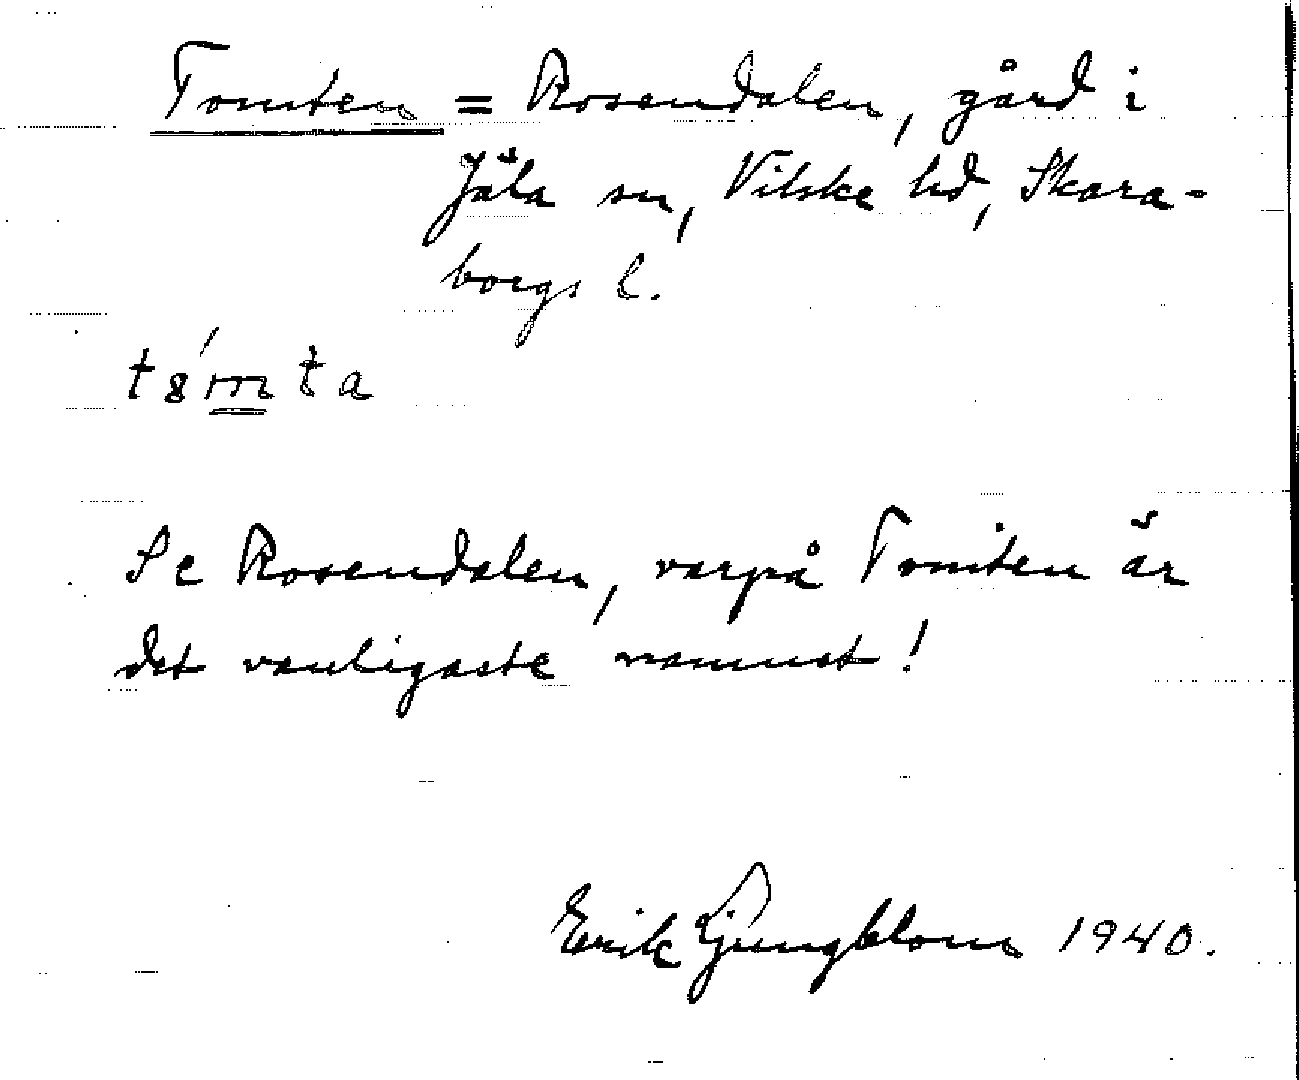 Tomten = Rosendalen, gård i
Jäla sn, Vilske hd, Skara-
borgs l.
Se Rosendalen, varpå Tomten är
det vanligaste namnet!
Erik Ljungblom 1940.